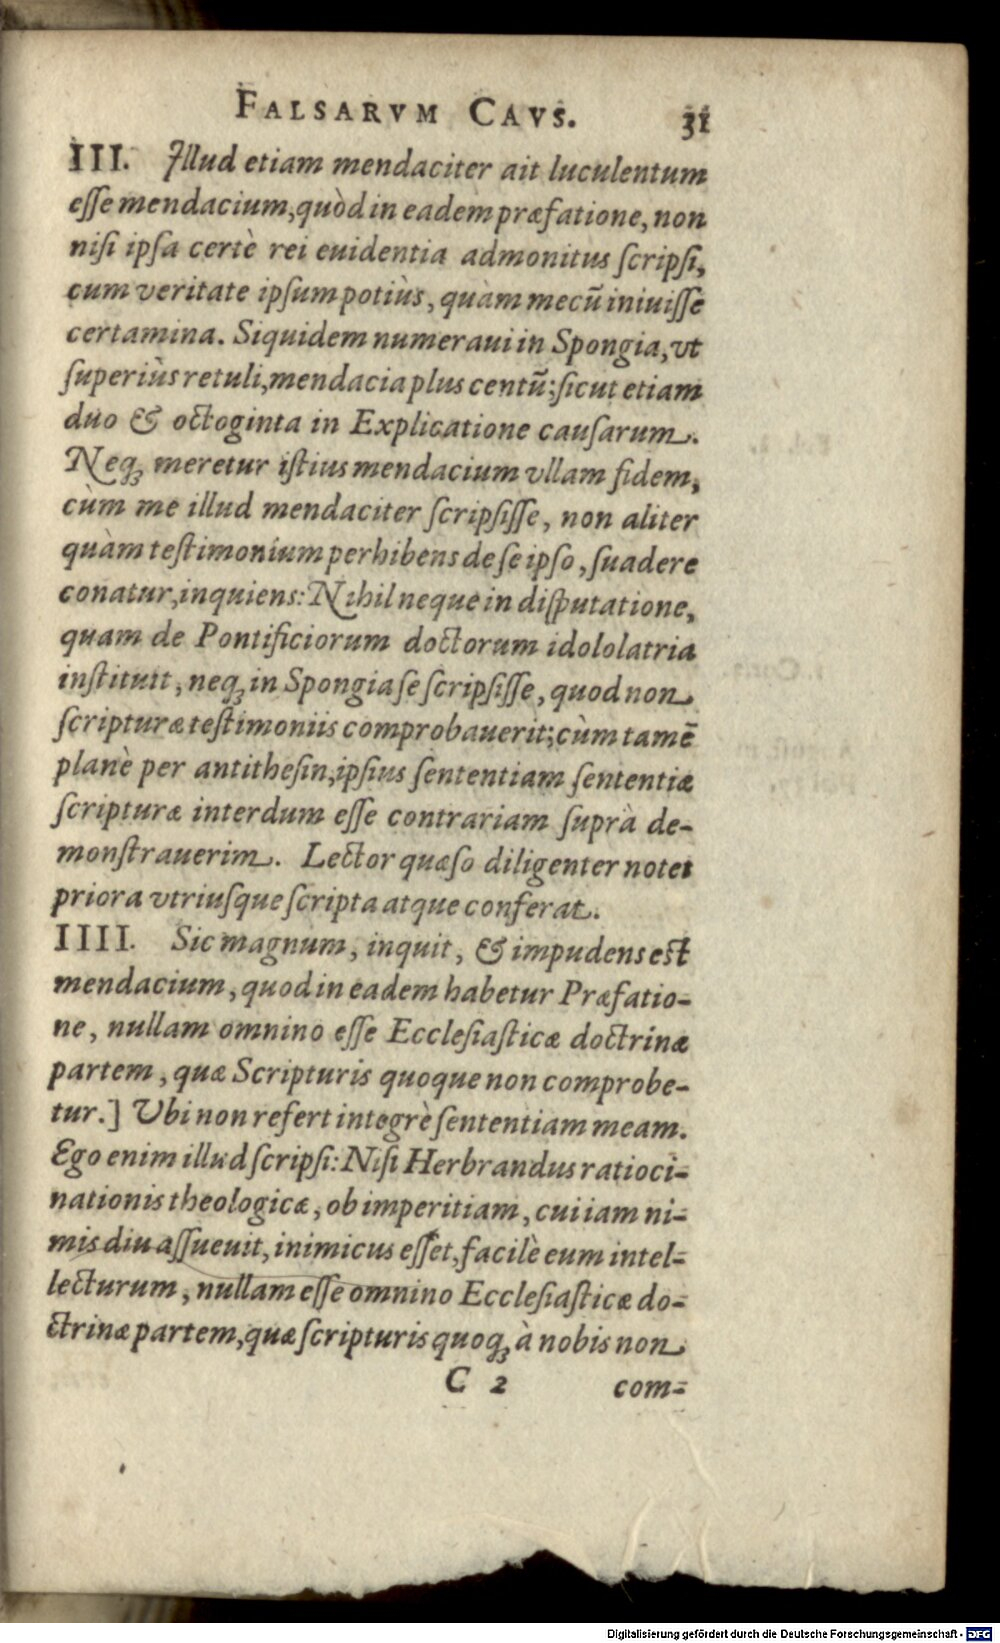 FALSARVM CAVS. 31
III. Illud etiam mendaciter ait luculentum
eſſe mendacium, quòd in eadem præfatione, non
niſi ipſa certè rei euidentia admonitus ſcripſi,
cum veritate ipſum potiùs, quàm mecũ iniuiſſe
certamina. Siquidem numeraui in Spongia, vt
ſuperiùs retuli, mendacia plus centũ: ſicut etiam
duo & octoginta in Explicatione cauſarum.
Neqꝫ meretur iſtius mendacium vllam fidem,
cùm me illud mendaciter ſcripſiſſe, non aliter
quàm teſtimonium perhibens de ſe ipſo, ſuadere
conatur, inquiens: Nihil neque in diſputatione,
quam de Pontificiorum doctorum idololatria
inſtituit, neqꝫ in Spongia ſe ſcripſiſſe, quod non
ſcripturæ teſtimoniis comprobauerit; cùm tamẽ
planè per antitheſin, ipſius ſententiam ſententiæ
ſcripturæ interdum eſſe contrariam ſuprà de-
monſtrauerim. Lector quæſo diligenter notet
priora vtriuſque ſcripta atque conferat.
IIII. Sic magnum, inquit, & impudens est
mendacium, quod in eadem habetur Præfatio-
ne, nullam omnino eſſe Eccleſiaſticæ doctrinæ
partem, quæ Scripturis quoque non comprobe-
tur.] Vbi non refert integrè ſententiam meam.
Ego enim illud ſcripſi: Niſi Herbrandus ratioci-
nationis theologicæ, ob imperitiam, cui iam ni-
mis diu aſſueuit, inimicus eſſet, facilè eum intel-
lecturum, nullam eſſe omnino Eccleſiaſticæ do-
ctrinæ partem, quæ ſcripturis quoqꝫ à nobis non
C 2 com-
Digitalisierung gefördert durch die Deutsche Forschungsgemeinschaft - DFG